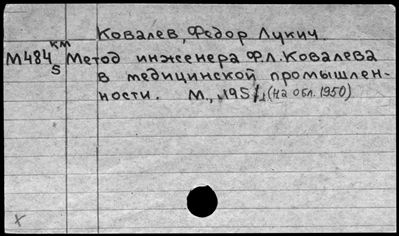 Ковалев, Федор Лукич.
М484 км Метод инженера Ф.Л. Ковалева
s в медицинской промышлен-
ности. М., 1951, (на обл. 1950)
х